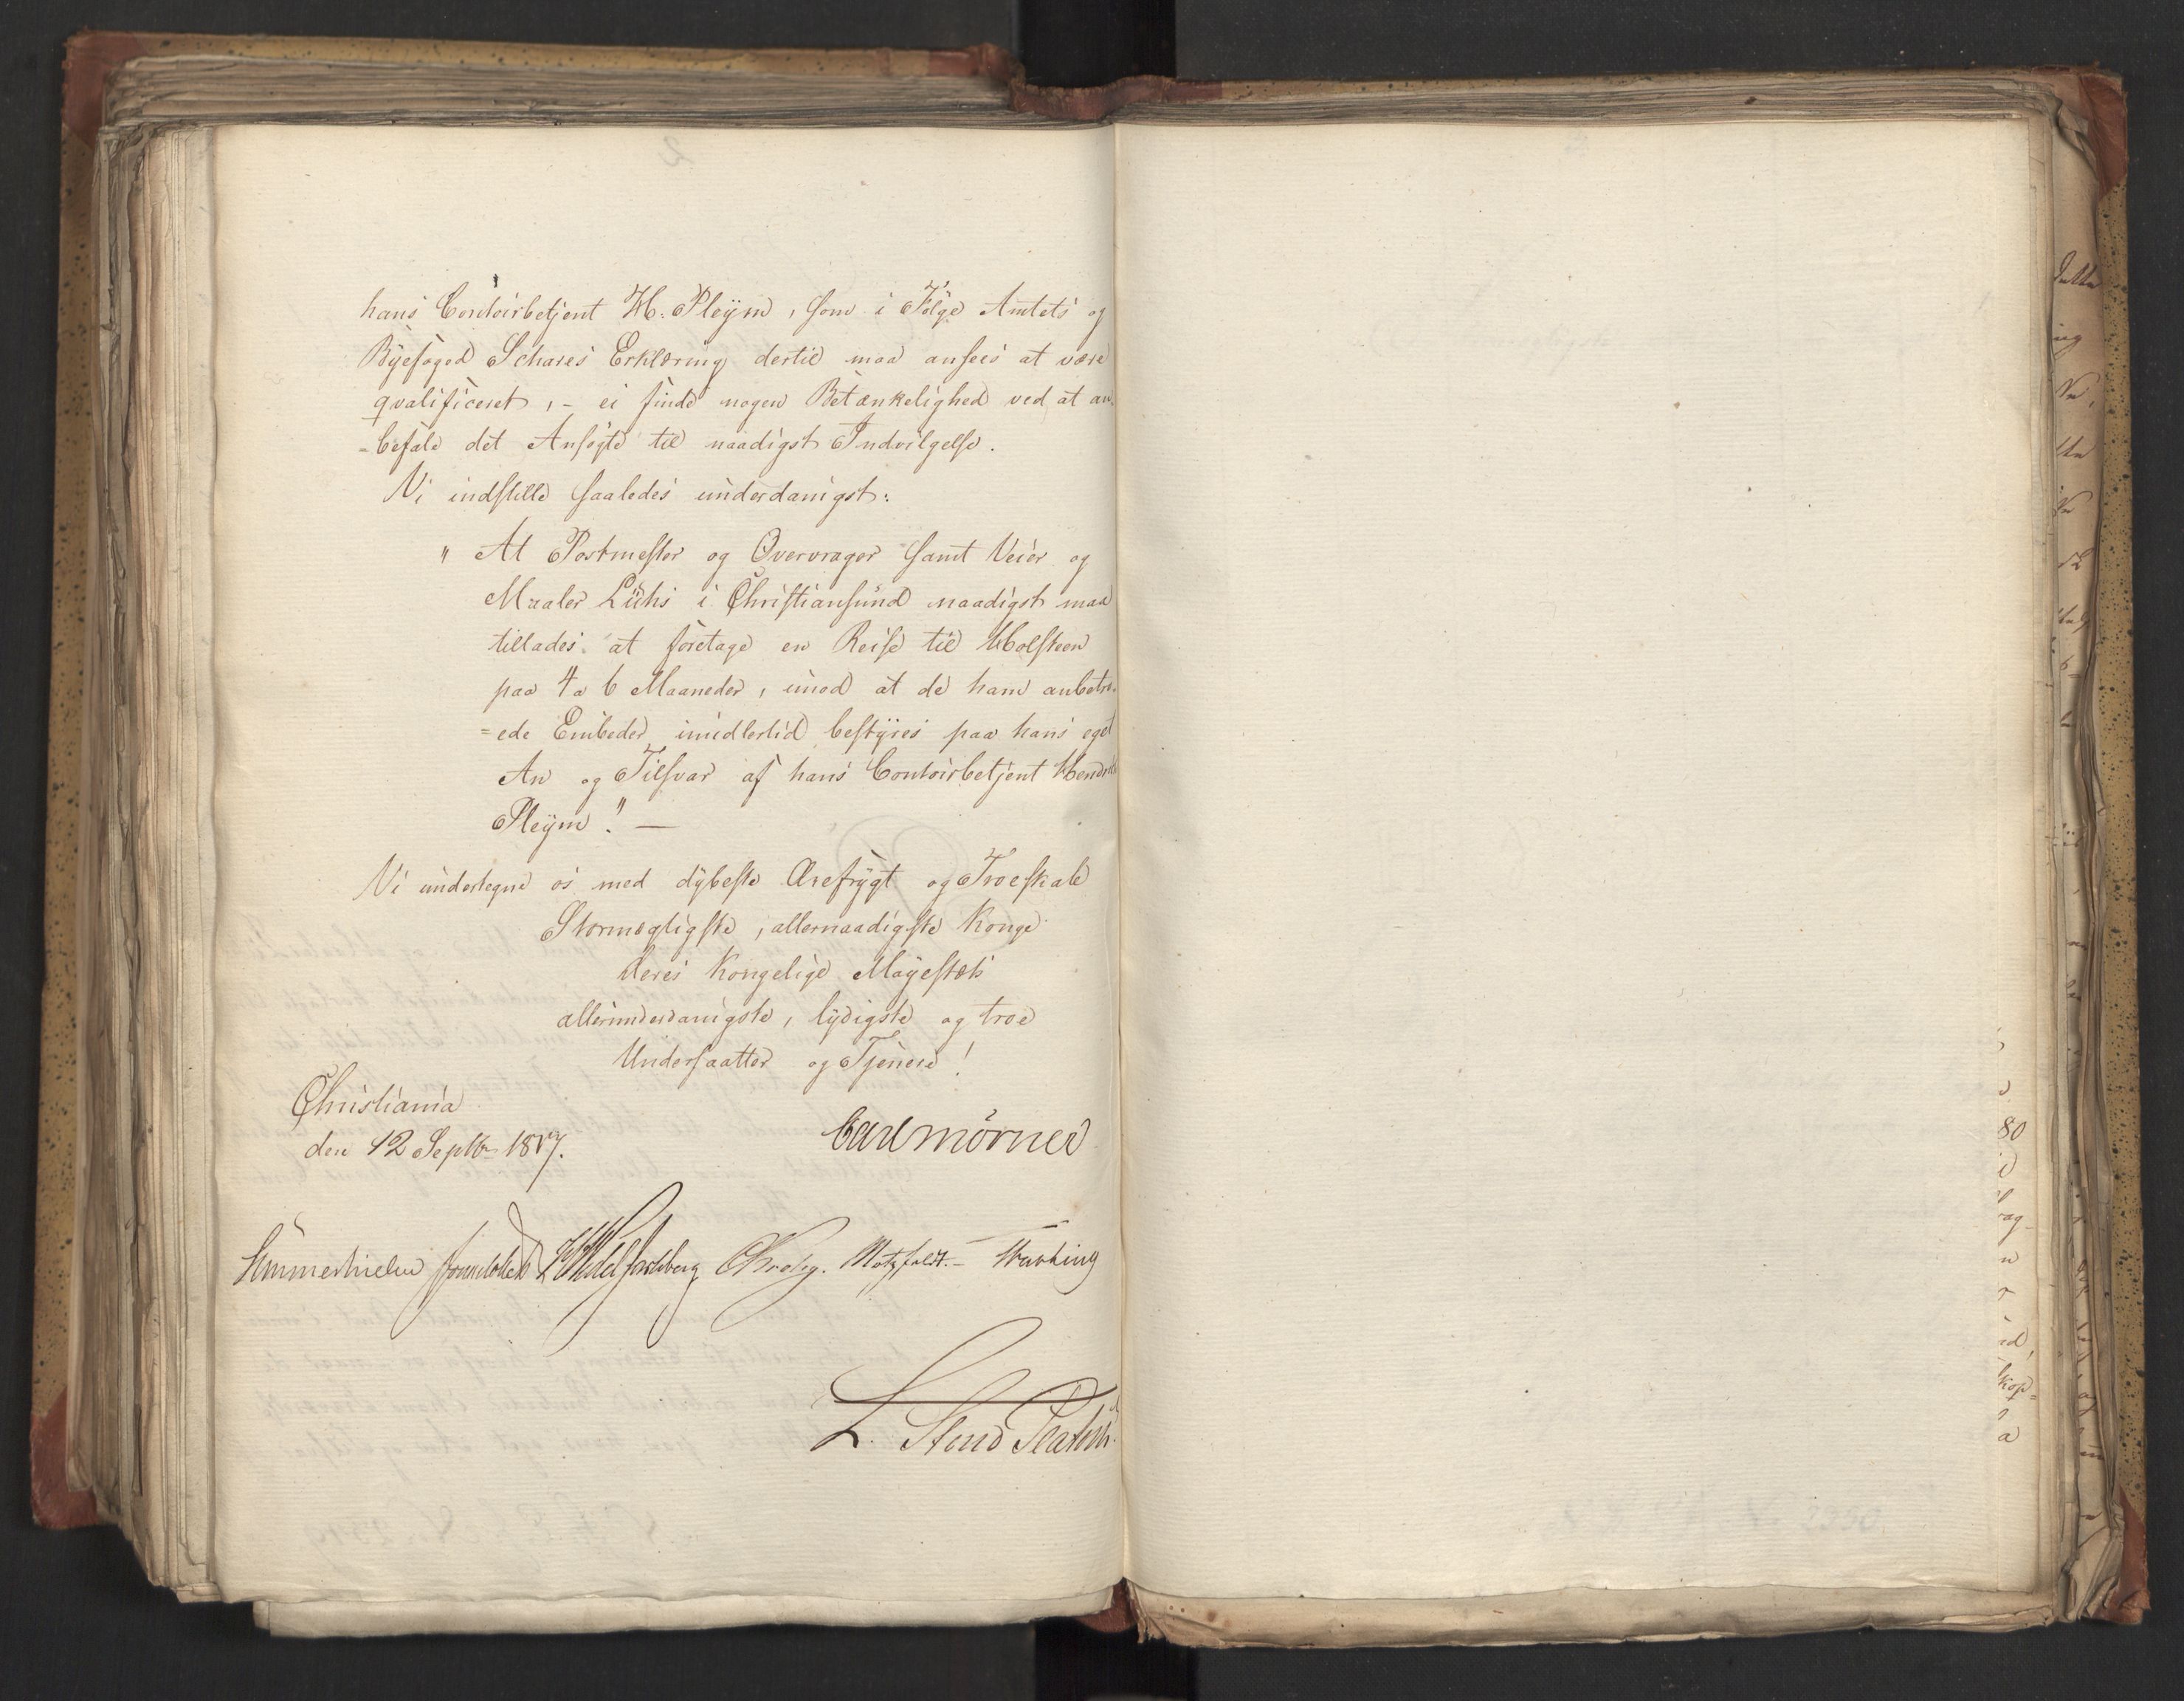 hans Contoirbetjent H. Pleÿm, som i Følge Amtets og
Bÿefoged Schares Erklæring dertil maa ansees at være
qvalificeret, - ei finde nogen Betænkelighed ved at an-
=befale det Ansøgte til naadigst Indvilgelse.
Vi indstille saaledes underdanigst:
" At Postmester og Overvrager samt Veier og
Maaler Lühs i Christiansund naadigst maa
tillades at foretage en Reise til Holsteen
paa 4 a 6 Maaneder, imod at de ham anbetro-
=ede Embeder imidlertid bestÿres paa hans eget
An og Tilsvar af hans Contoirbetjent Hendrik
Pleÿm." —
Vi undertegne os med dÿbeste Ærefrÿgt og Troeskab
Stormægtigste, allernaadigste Konge
Deres Kongelige Mayestæts
allerunderdanigste, lÿdigste og troe
Undersaatter og Tjenere!
Christiania
den 12 Septbr 1817.
Carl Mörner
Hummerhielm Sommerhielm Krohg. Motzfeldt. -
L. Stoud Platou
80